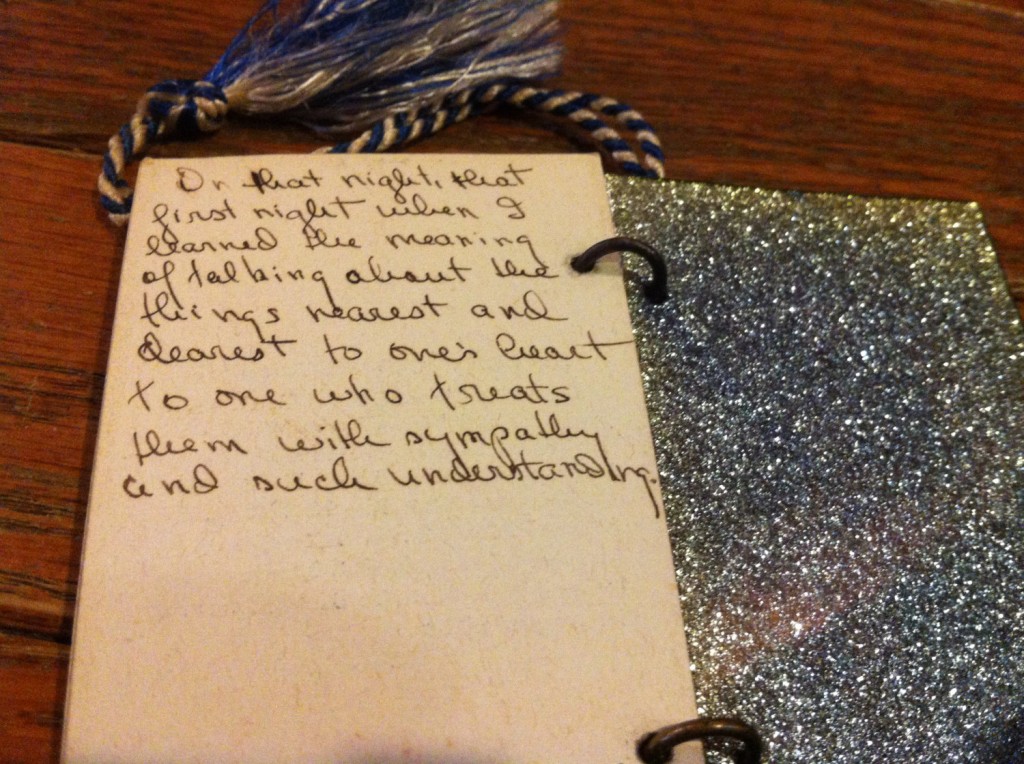 On that night, that
first night when I
learned the meaning
of talking about the
things nearest and
dearest to one's heart
to one who treats
them with sympathy
and such understanding.